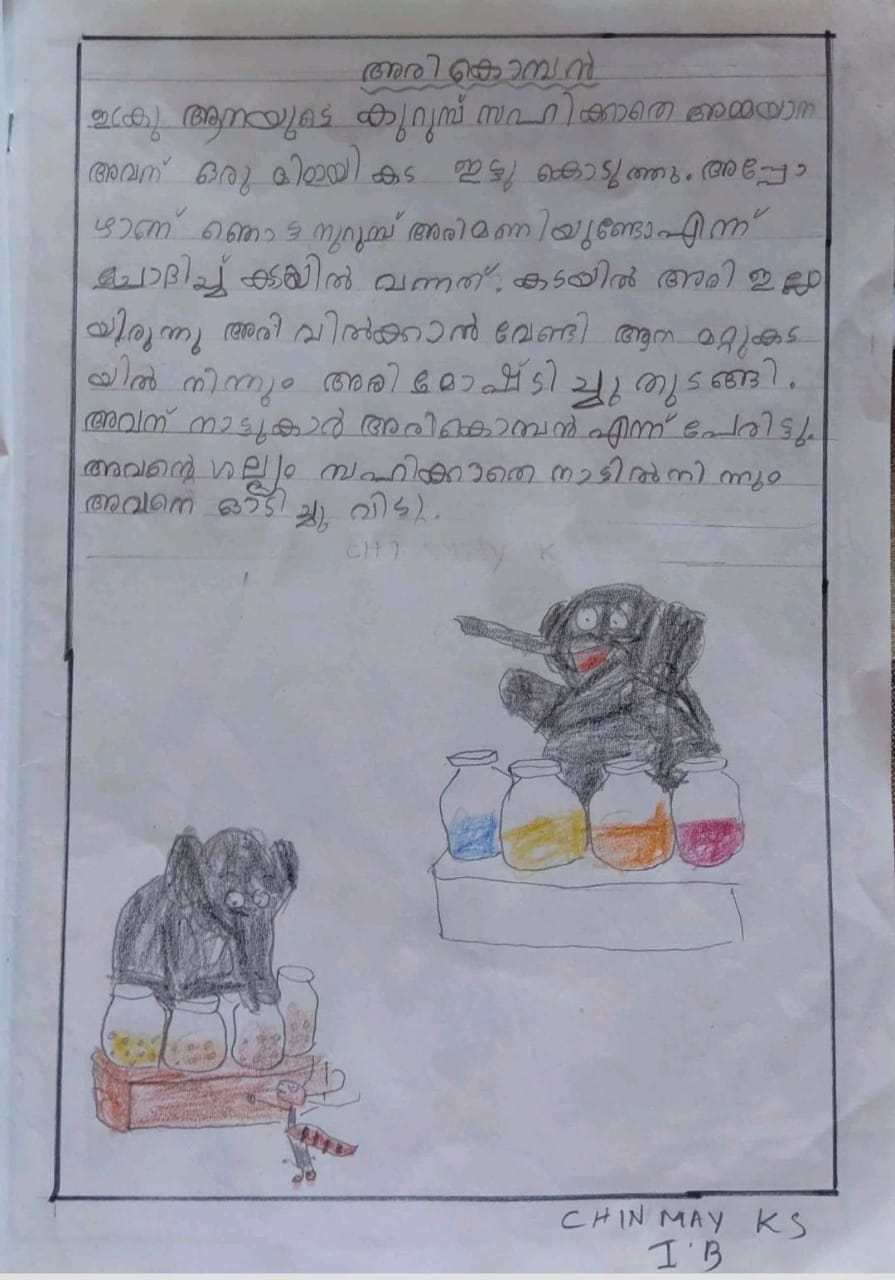 അരികൊമ്പൻ
ഇടക്കു ആനയുടെ കുറുമ്പ് സഹിക്കാതെ അമ്മയാന
അവന് ഒരു മിഠായി കട ഇട്ടു കൊടുത്തു. അപ്പോ
ഴാണ് ഞൊട്ടനുറുമ്പ് അരിമണിയുണ്ടോഎന്ന്
ചോദിച്ച് കടയിൽ വന്നത്. കടയിൽ അരി ഇല്ലാ
യിരുന്നു അരി വിൽക്കാൻ വേണ്ടി ആന മറ്റുകട
യിൽ നിന്നും അരി മോഷ്ടിച്ചു തുടങ്ങി.
അവന് നാട്ടുകാർ അരികൊമ്പൻ എന്ന് പേരിട്ടു.
അവന്റെ ശല്ല്യം സഹിക്കാതെ നാട്ടിൽനിന്നും
അവനെ ഓടിച്ചു വിട്ടു.
CHINMAY K
CHINMAY KS
I.B